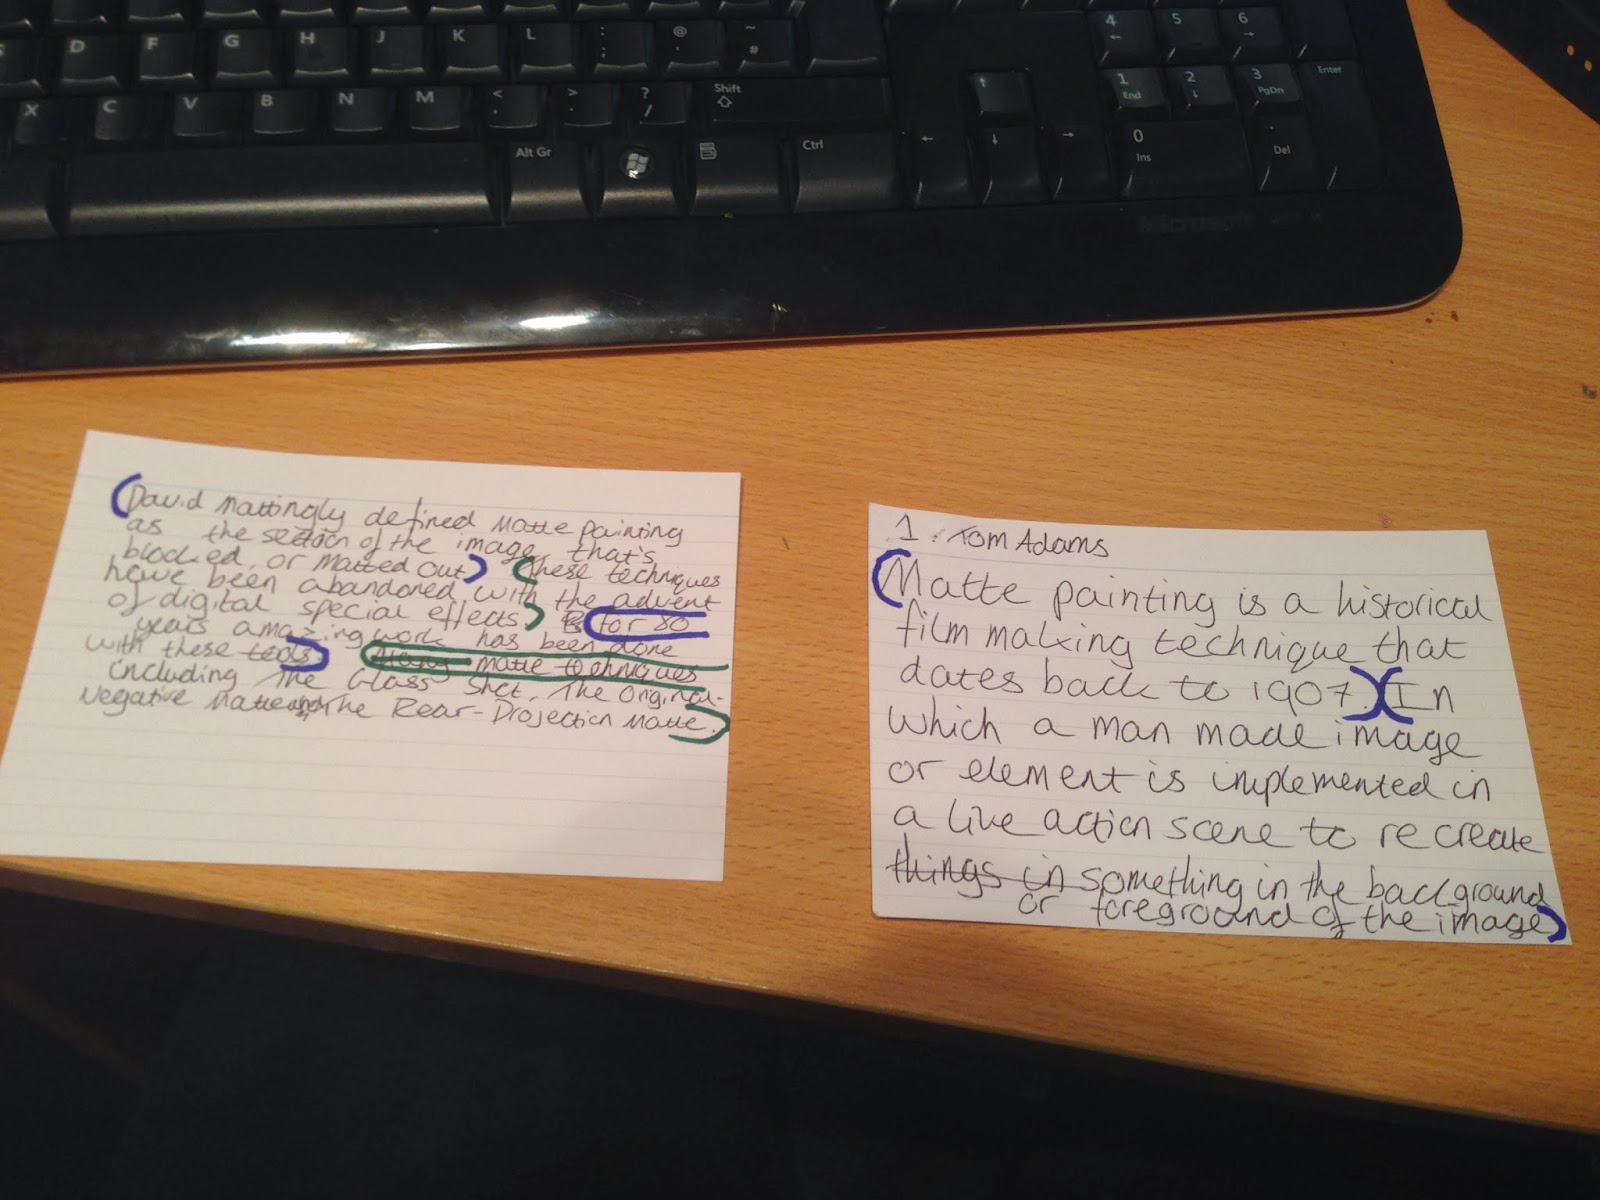 D F G H J K L : ; @ ' ~ #
4 ← 5 6 →
X C V B N M < , > . ? / Shift
↑ 1 End 2 ↓ 3 PgDn Enter
Alt Gr Ctrl ← ↓ → 0 Ins . Del
Microsoft
David Mattingly defined Matte painting
as the section of the image that's
blocked, or Matted Out) (These techniques
have been abandoned with the advent
of digital special effects) (for 80
years amazing work has been done
with these tools) (Many matte techniques
including The Glass Shot, The Original-
Negative Matte and The Rear-Projection Matte.)
1. Tom Adams
(Matte painting is a historical
film making technique that
dates back to 1907.)(In
which a man made image
or element is implemented in
a live action scene to recreate
things in something in the background
or foreground of the image)